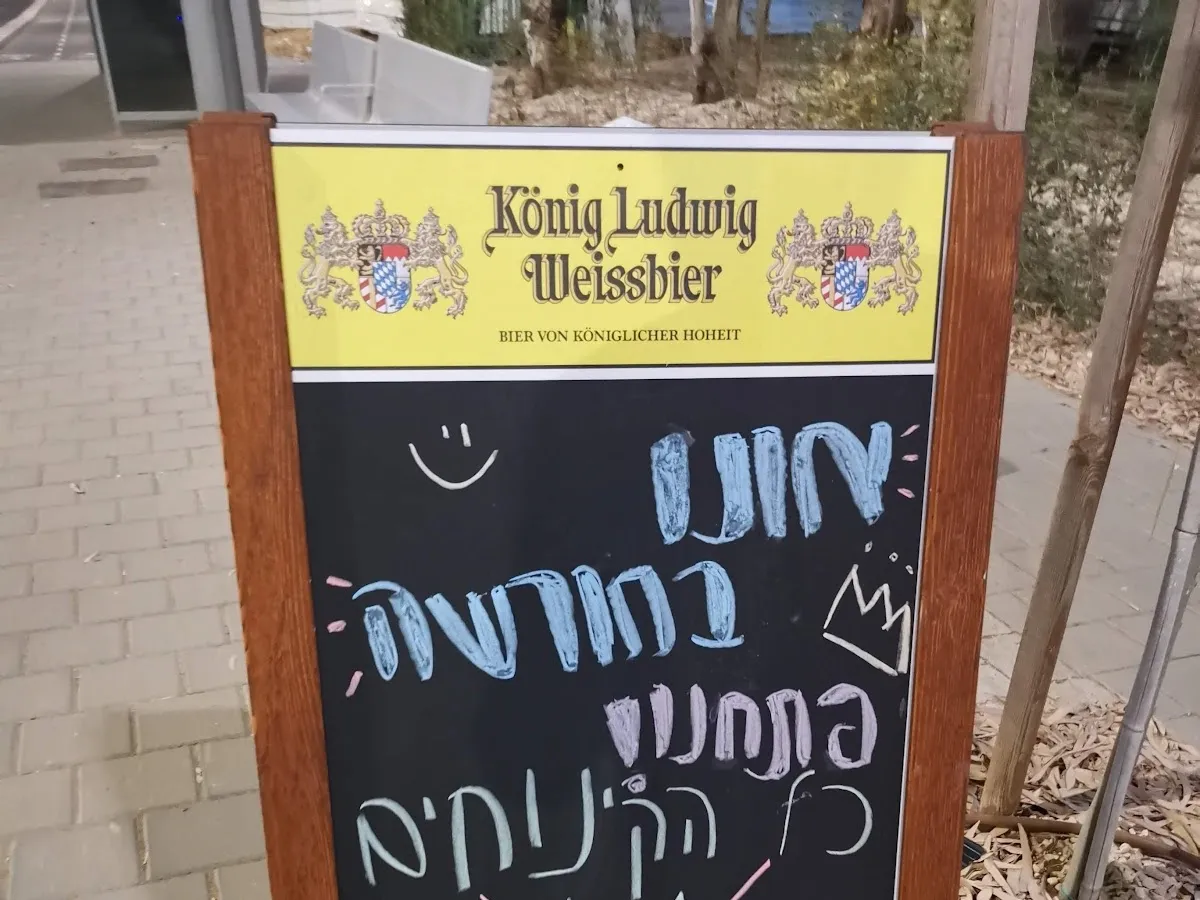 König Ludwig
Weissbier
BIER VON KÖNIGLICHER HOHEIT
בחורשה
פתחנו!
כל הקינוחים